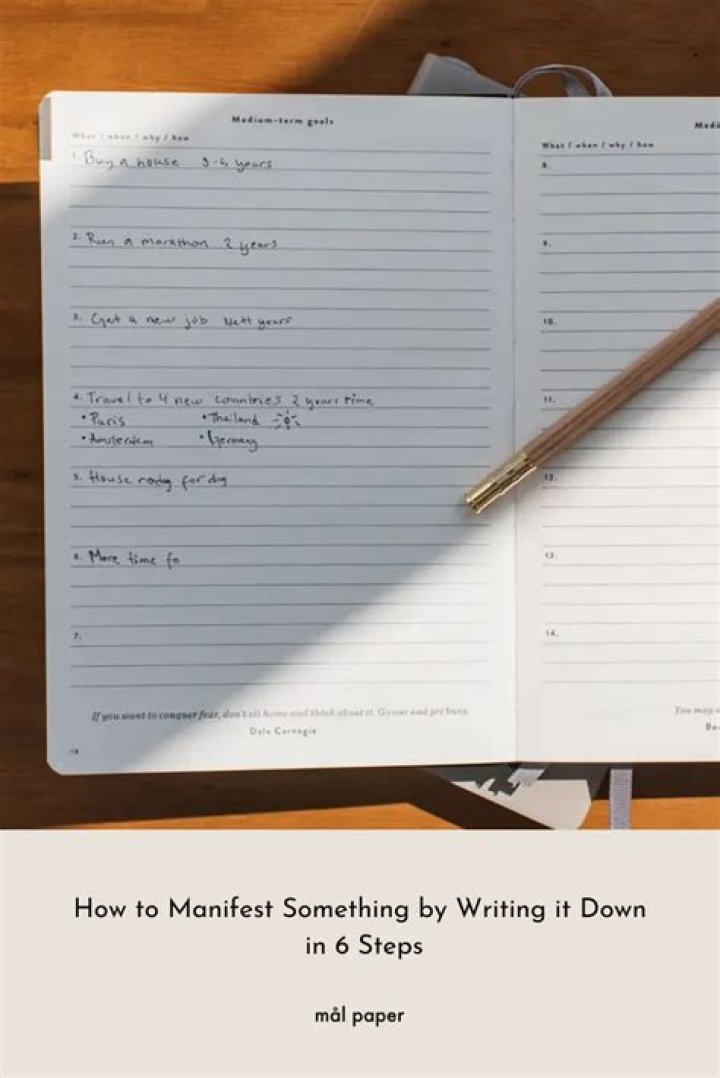 Medium-term goals
What / when / why / how
1. Buy a house 3-5 years
2. Run a marathon 2 years
3. Get a new job years
4. Travel to 4 new countries 2 years time
• Paris • Thailand
• Amsterdam • Germany
5. House ready for dog
6. More time fo
7.
If you want to conquer fear, don't sit home and think about it. Go out and get busy.
Dale Carnegie
What / when / why / how
8.
9.
10.
11.
12.
13.
14.
You may
How to Manifest Something by Writing it Down
in 6 Steps
mål paper